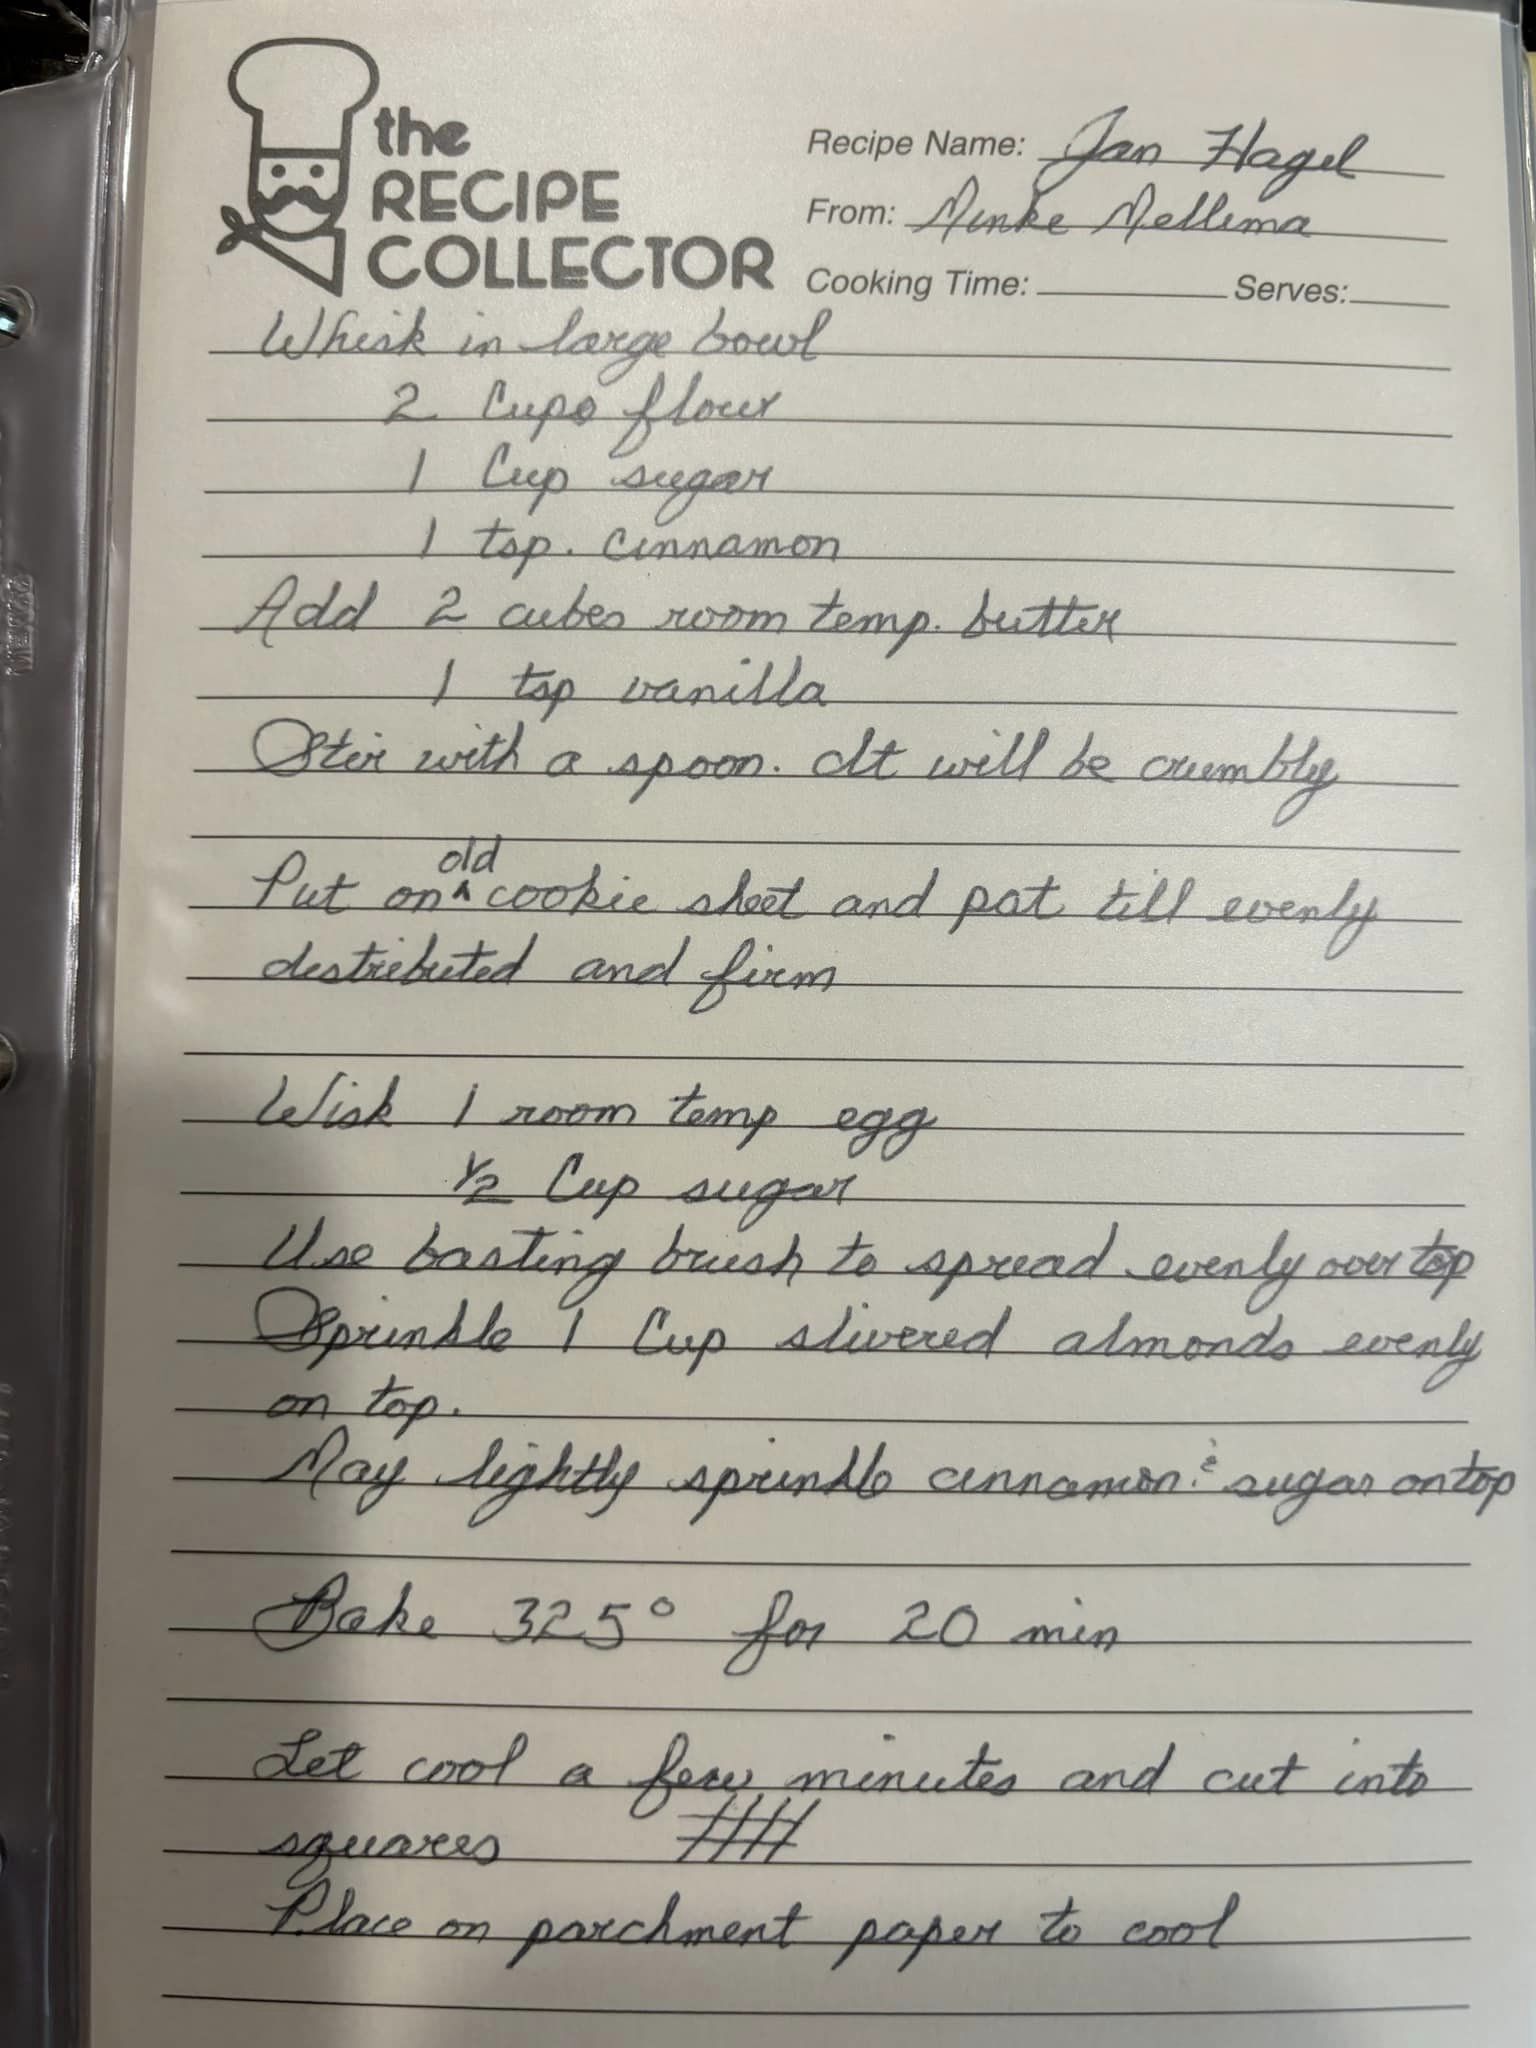 the
RECIPE
COLLECTOR
Recipe Name: Jan Hagel
From: Minke Mellema
Cooking Time: Serves:
Whisk in large bowl
2 Cups flour
1 Cup sugar
1 tsp. cinnamon
Add 2 cubes room temp. butter
1 tsp vanilla
Stir with a spoon. It will be crumbly
Put on old cookie sheet and pat till evenly
distributed and firm
Wisk 1 room temp egg
1/2 Cup sugar
Use basting brush to spread evenly over top
Sprinkle 1 Cup slivered almonds evenly
on top.
May lightly sprinkle cinnamon & sugar on top
Bake 325° for 20 min
Let cool a few minutes and cut into
squares
Place on parchment paper to cool